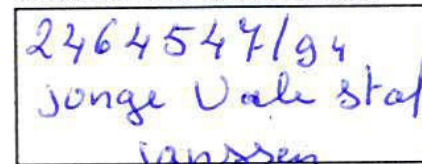 2464547/94
jonge Vale stal
janssen